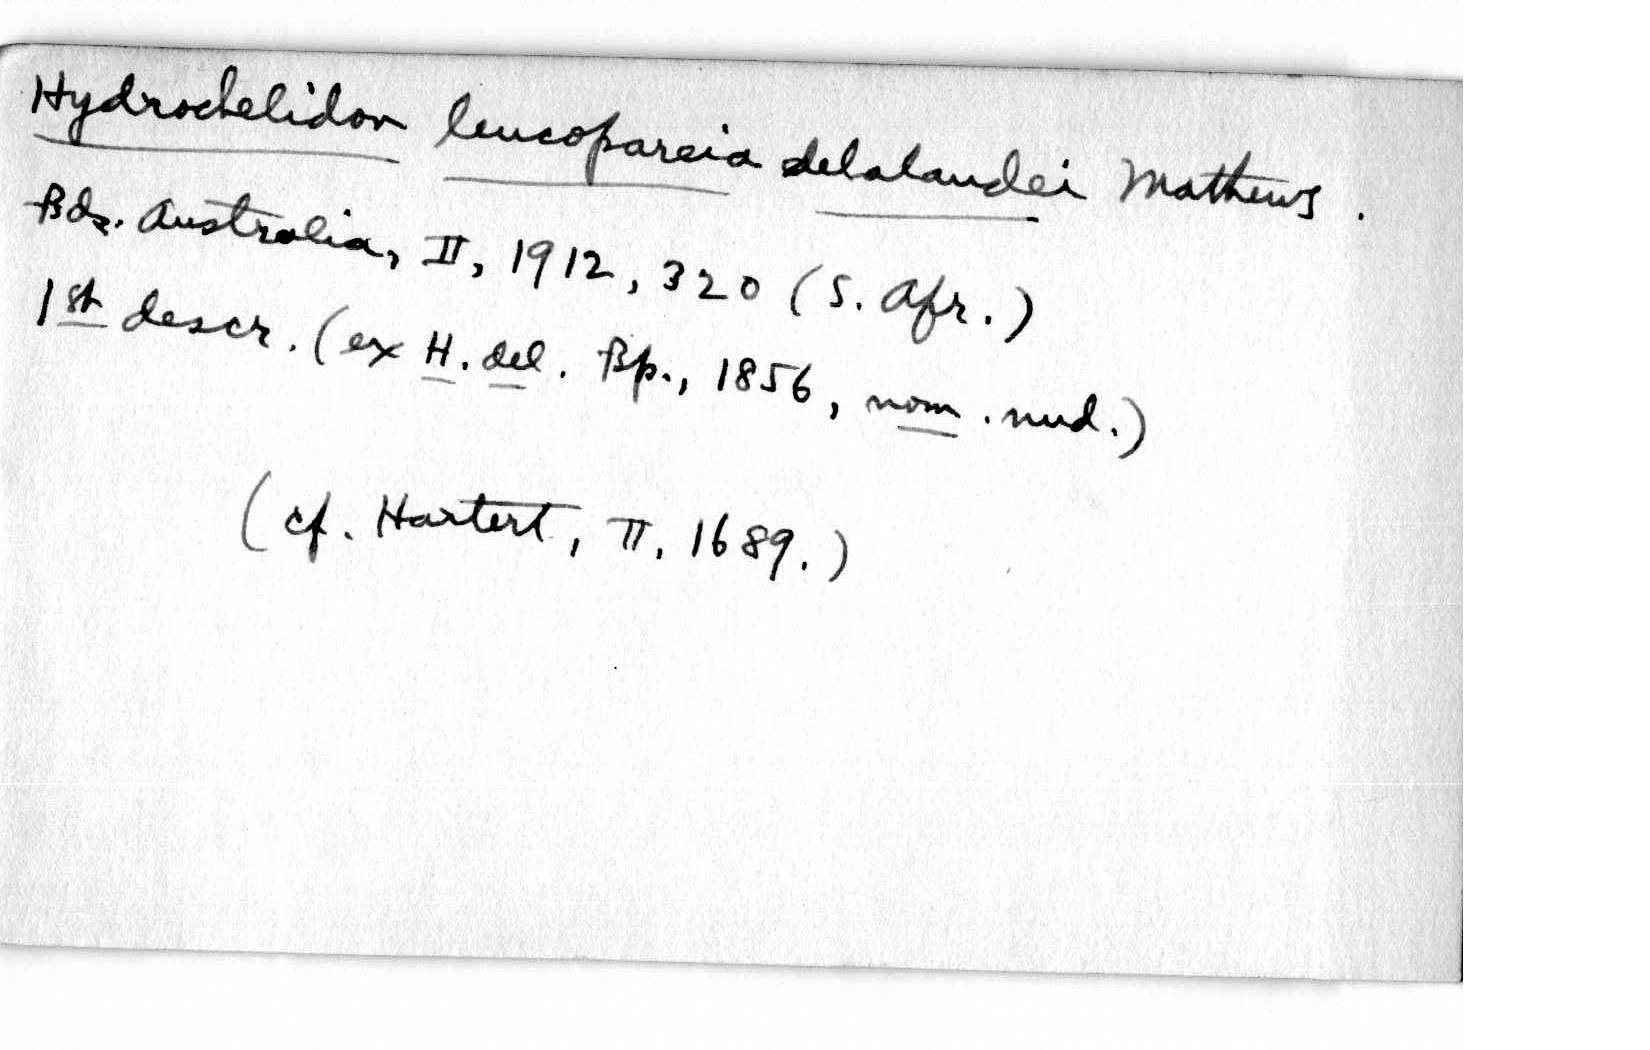 Hydrochelidon leucopareia delalandei Mathews.
Bds. Australia, II, 1912, 320 (S. Afr.)
1st descr. (ex H. del. Bp., 1856, nom. nud.)
(cf. Hartert, II, 1689.)